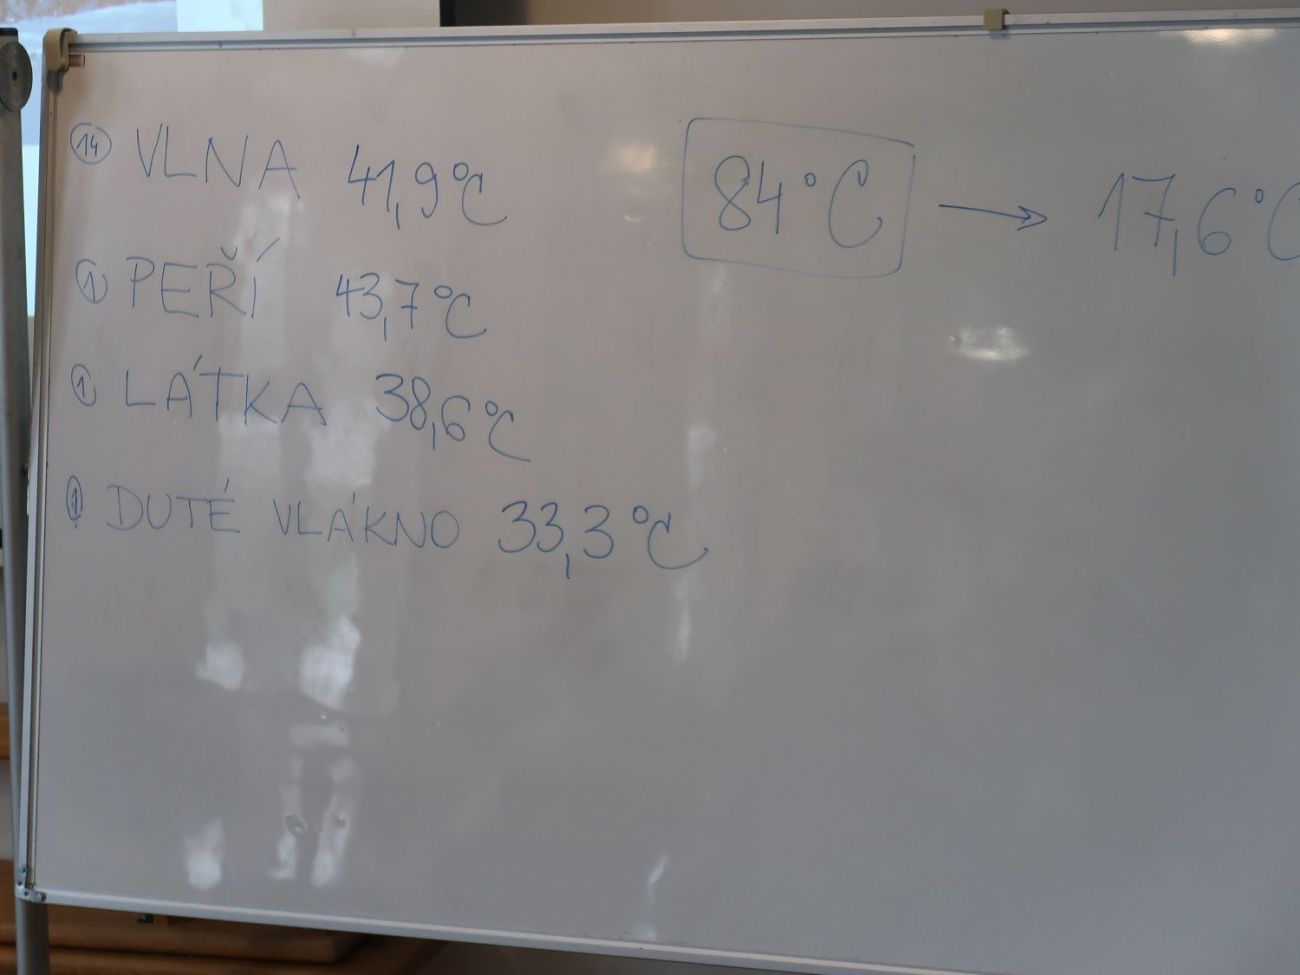 14 VLNA 41,9°C
1 PEŘÍ 43,7°C
1 LÁTKA 38,6°C
1 DUTÉ VLÁKNO 33,3°C
84°C → 17,6°C